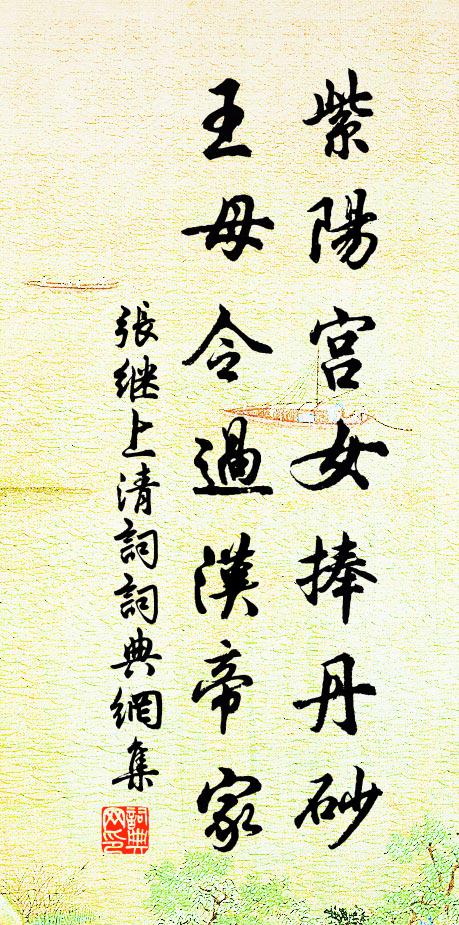 紫陽宮女捧丹砂
王母令過漢帝家
張继上清詞詞典網集
詞典
网印